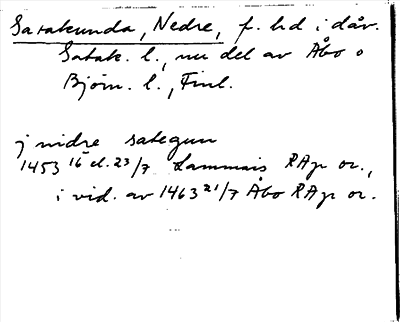 Satakunda, Nedre, f. hd i dåv.
Satak. l., nu del av Åbo o
Björn. l., Finl.
j nidre sategun
1453 16 el. 23/7 Lammais RApr or.,
i vid. av 1463 21/7 Åbo RApr or.